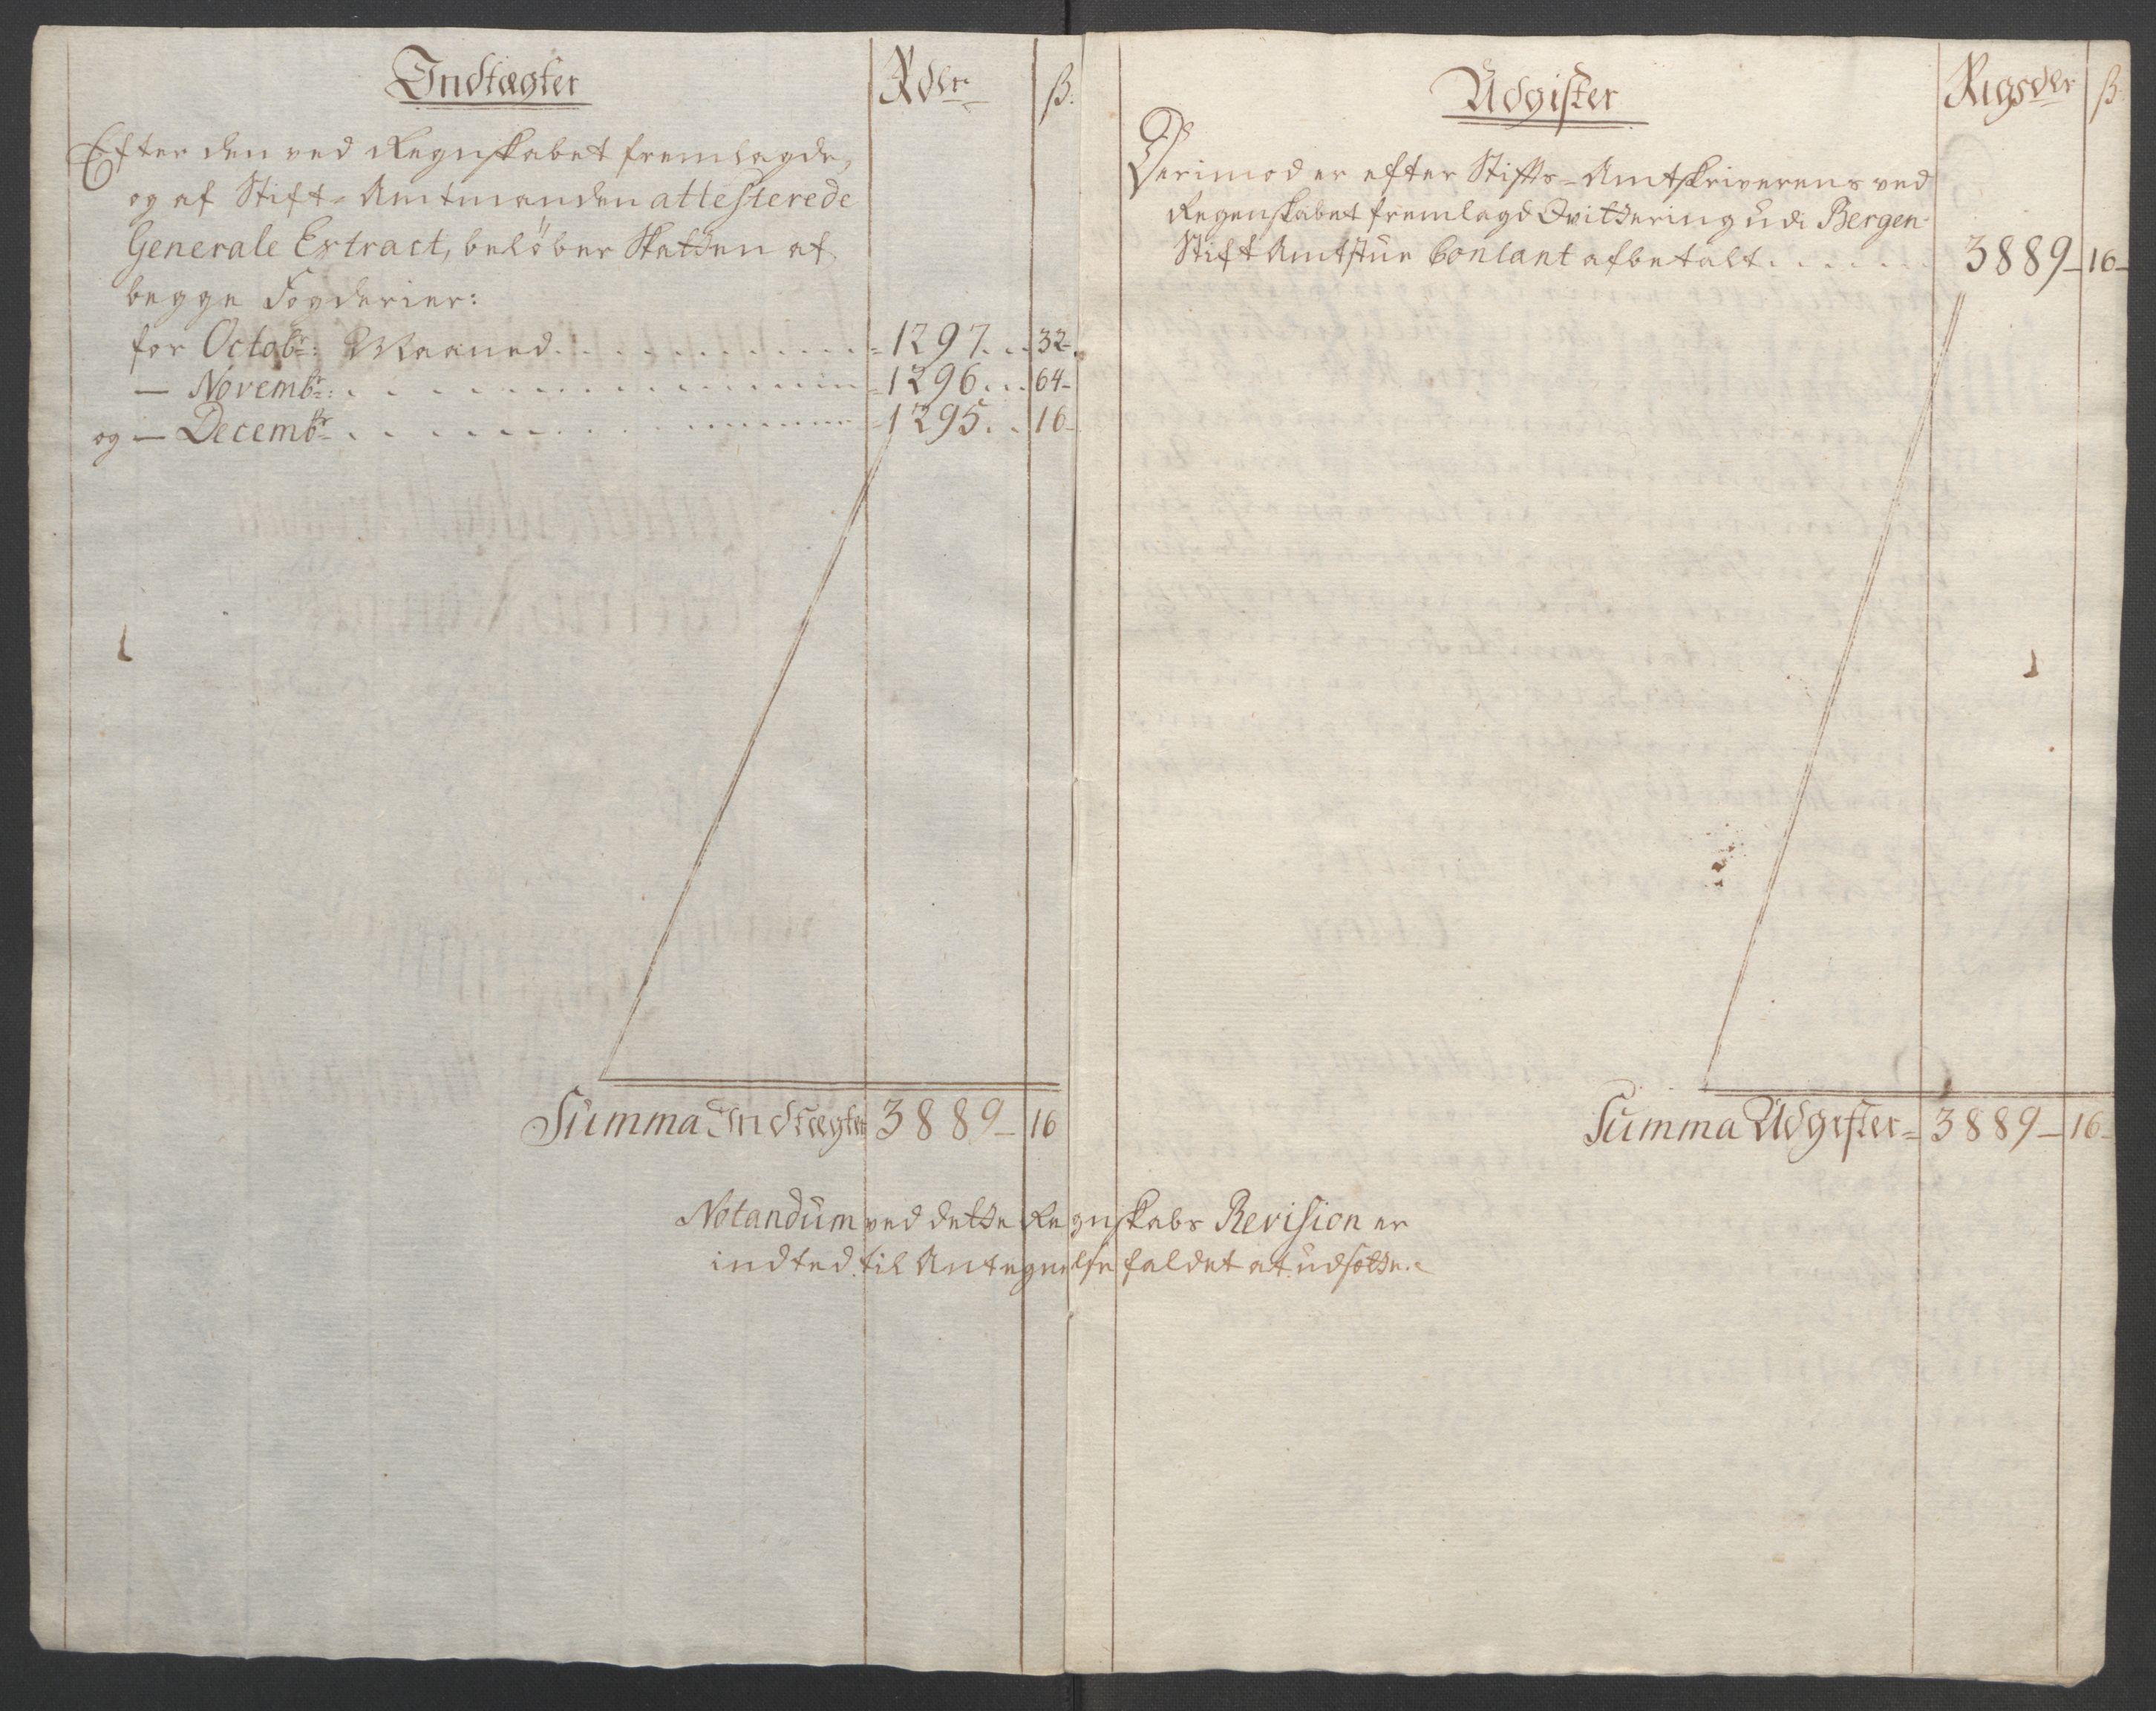 Indtægter Rdlr ß.
Efter den ved Regnskabet fremlagde,
og af Stift-Amtmanden attesterede
Generale Extract, beløber Skatten af
begge Fogderier:
for Octobr: Maaned . . . . . . . . . . . 1297 . . 32-
— Novembr: . . . . . . . . . . . 1296 . . . 64-
og — Decembr . . . . . . . . . . . 1295 . . 16-
Summa Indtægter 3889- 16
Udgifter Rigsdlr ß
Derimod er efter Stifts-Amtskriverens ved
Regenskabet fremlagd Qvittering udi Bergen
Stift Amtstue Contant afbetalt . . . . . . 3889- 16-
Summa Udgifter = 3889- 16-
Notandum ved dette Regnskabs Revision er
indted til Antegnelse faldet at udsætte.